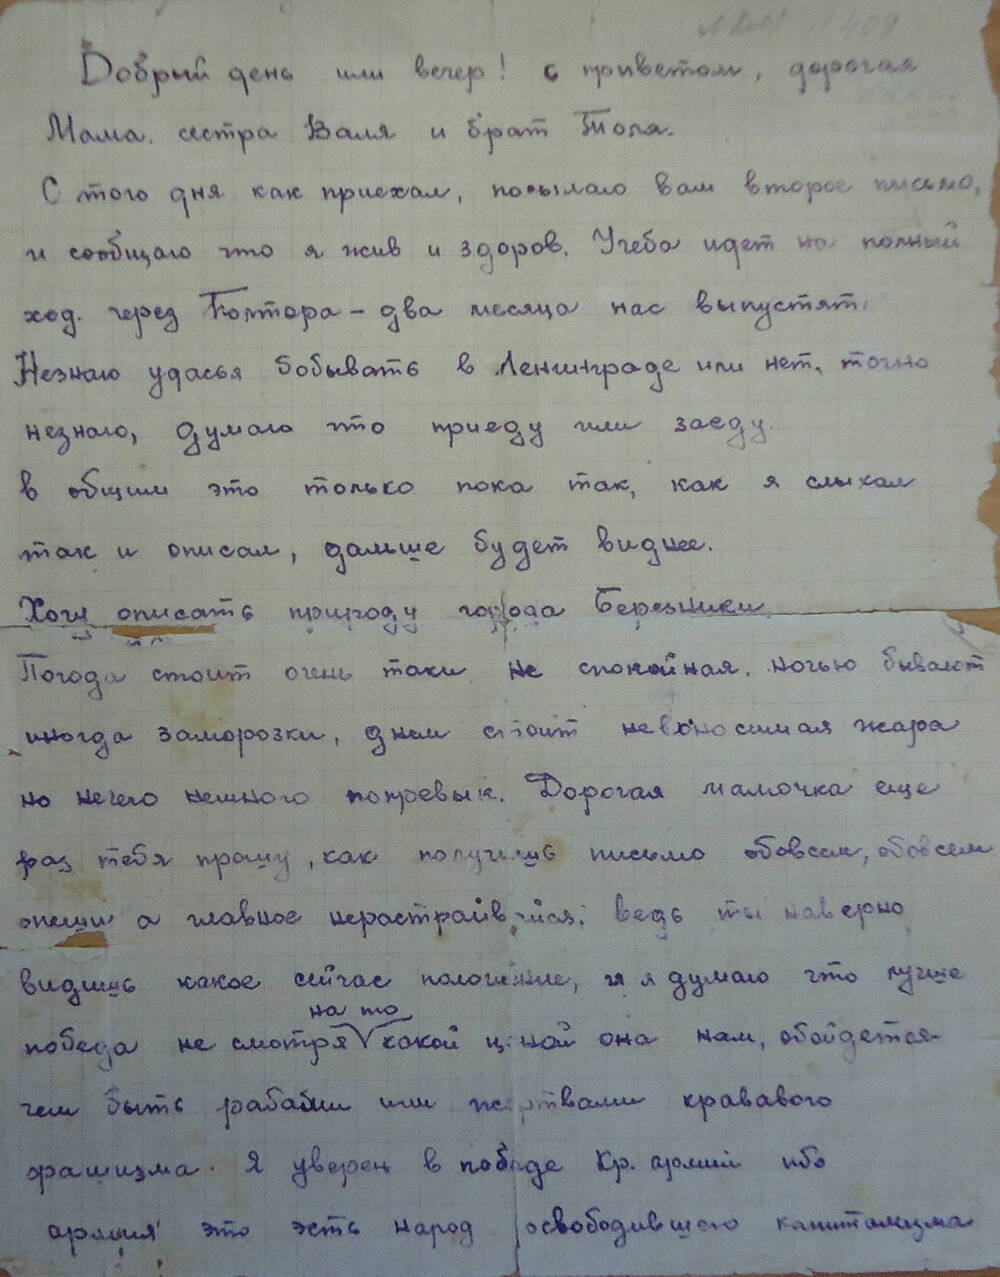 Добрый день или вечер! с приветом, дорогая
Мама. сестра Валя и брат Толя.
С того дня как приехал, посылаю вам второе письмо,
и сообщаю что я жив и здоров. Учеба идет на полный
ход. через Полтора – два месяца нас выпустят.
Незнаю удасья бобывать в Ленинграде или нет, точно
незнаю, думаю что приеду или заеду.
в общим это только пока так, как я слыхал
так и описал, дальше будет виднее.
Хочу описать природу города Березники
Погода стоит очень таки не спокойная. ночью бывают
иногда заморозки, днем стоит невыносимая жара
но нечего немного попревык. Дорогая мамочка еще
раз тебя прошу, как получишь письмо обовсем, обовсем
опеши а главное нерастрайвайся. ведь ты наверно
видишь какое сейчас положение, и я думаю что лучше
победа не смотря на то какой ценой она нам, обойдется
чем быть рабами или жертвами кравового
фашизма. Я уверен в победе Кр. армии ибо
армия это эсть народ освободившего капитализма